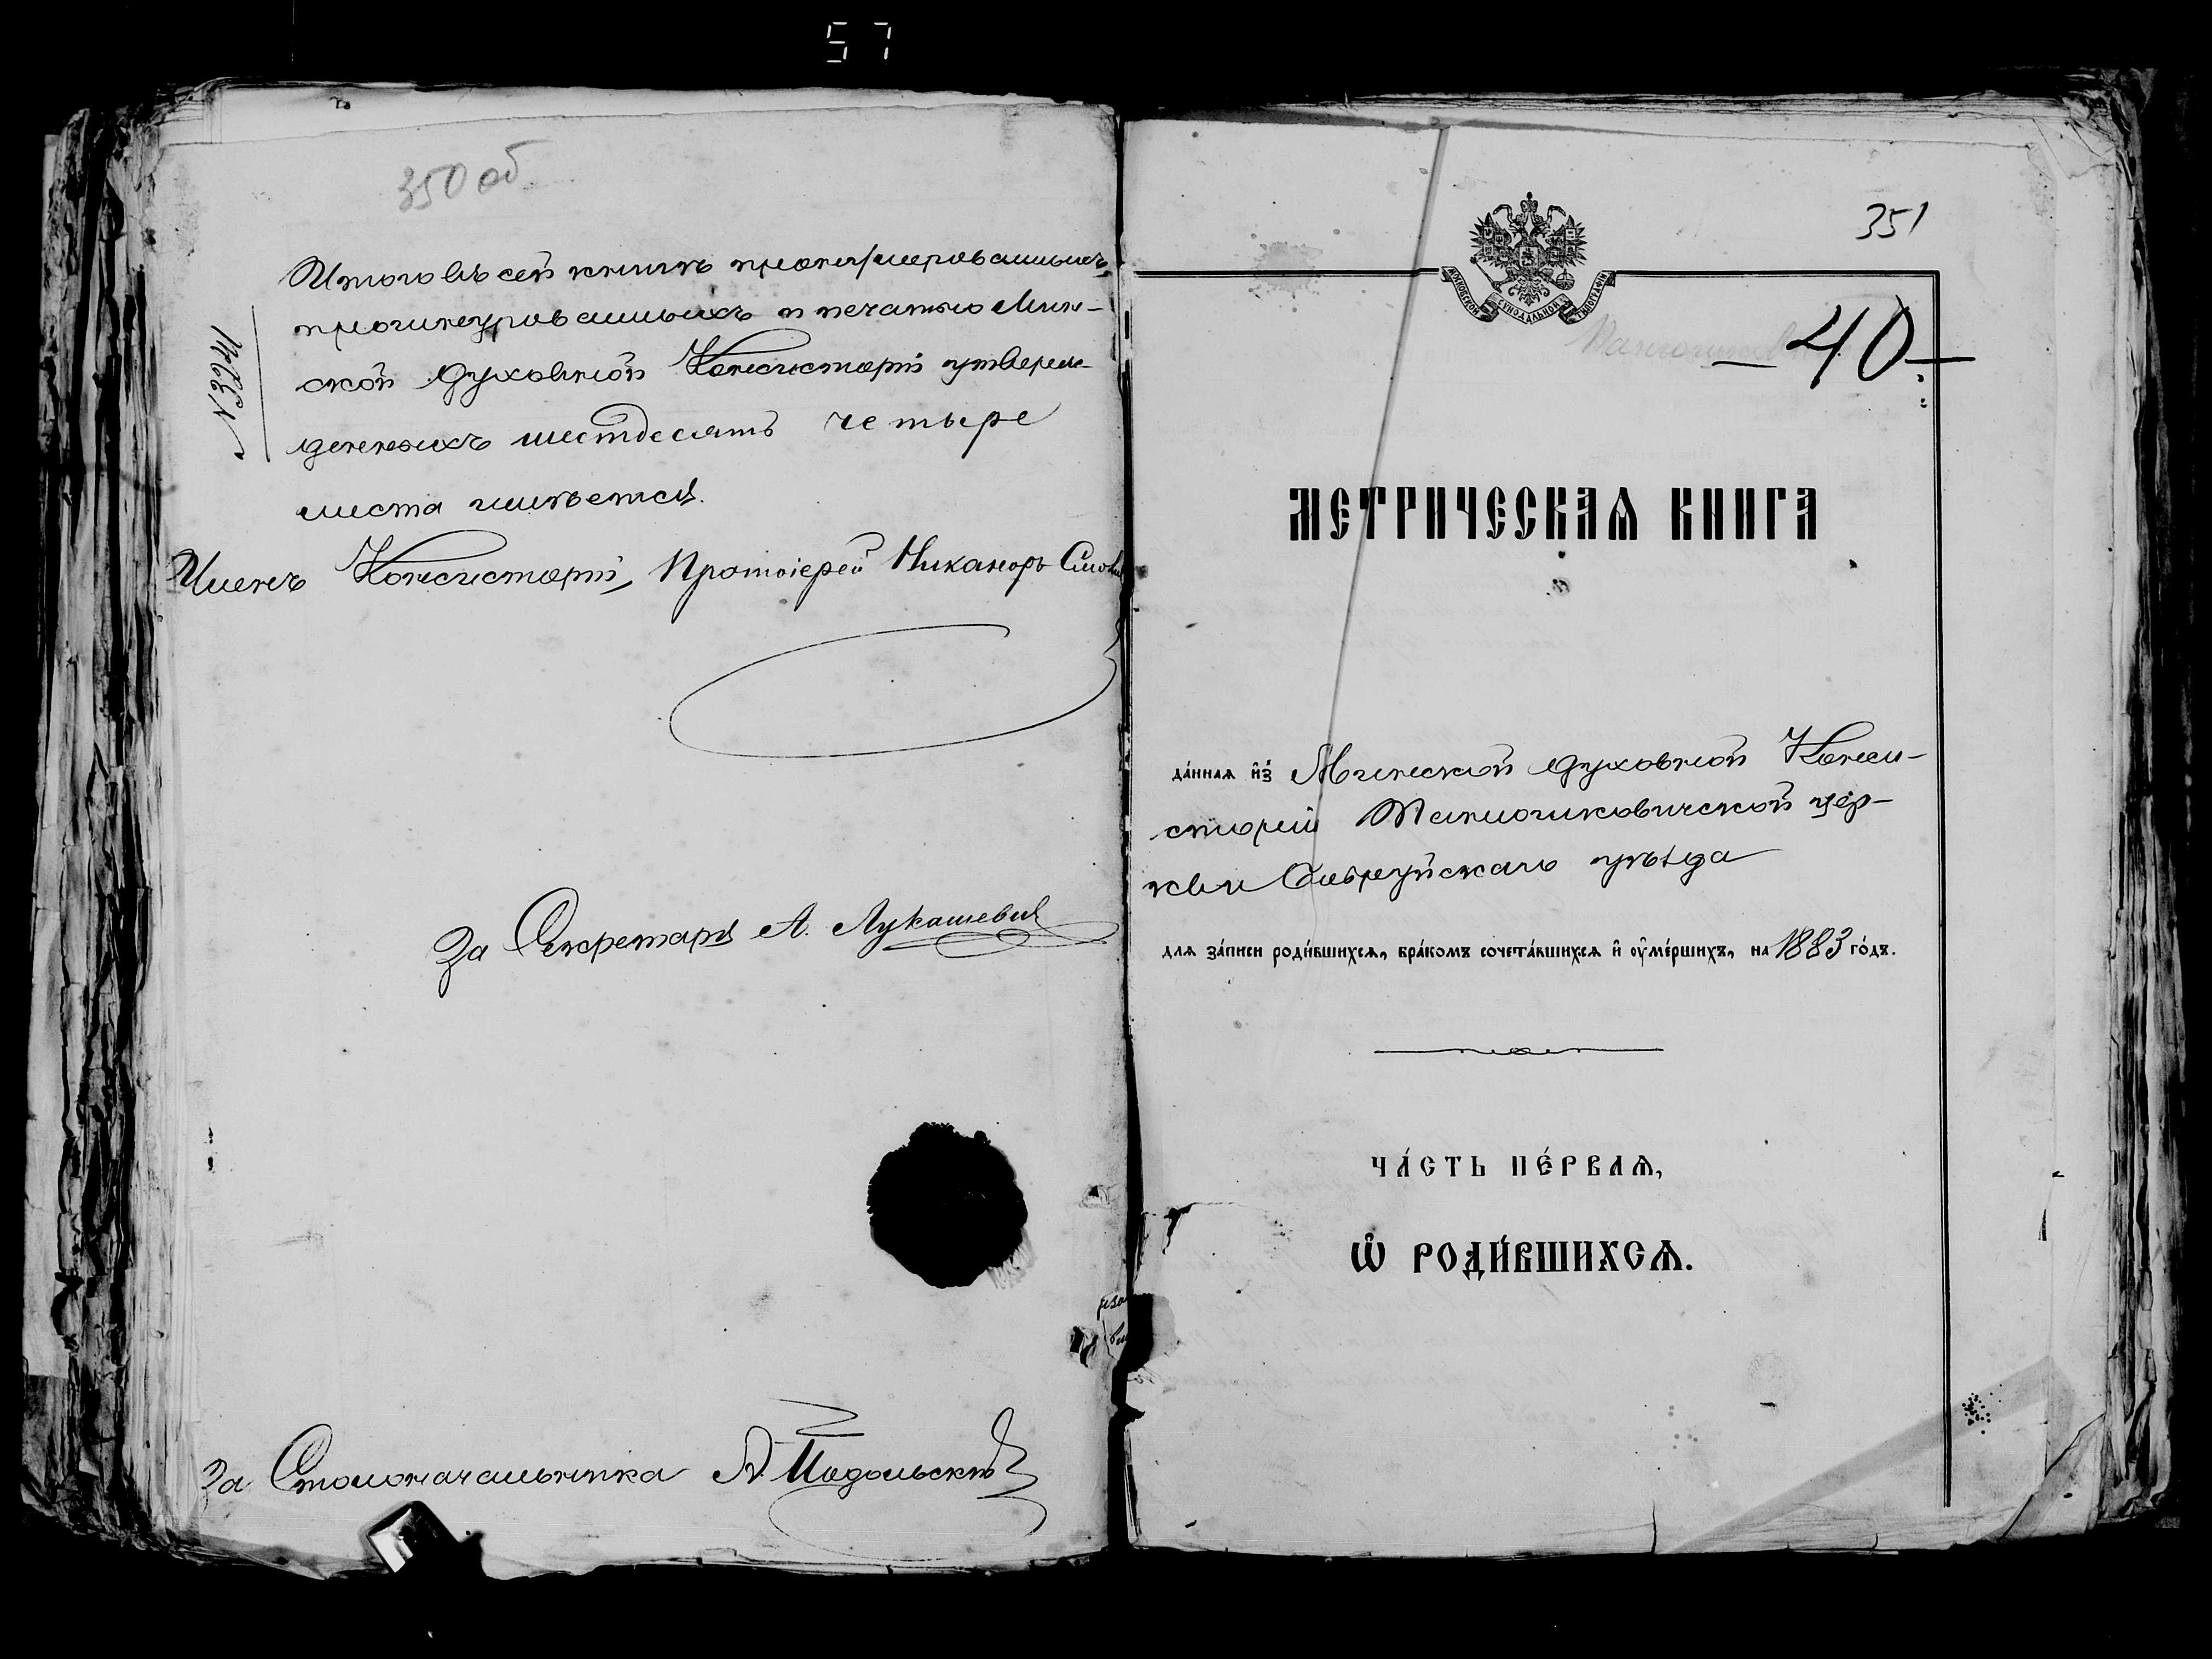 57
350 об
Итого въ сей книгѣ пронумерованныхъ,
прошнурованныхъ и печатью Мин-
ской Духовной Консисторіи утверж-
денныхъ шестдесятъ четыре
листа имѣется.
Членъ Консисторіи, Протоіерей Никаноръ
№ 3941
За Секретаря А. Лукашевичъ
За Столоначальника А. Подольскій
351
МОСКОВСКОЙ СѴНОДАЛЬНОЙ ТИПОГРАФІИ
— 40 —
МЕТРИЧЕСКАѦ КНИГА
да́ннаѧ и҆зъ Минской Духовной Конси-
сторіи церк-
кви Бобруйскаго уѣзда
длѧ за́писи роди́вшихсѧ, бра́комъ сочета́вшихсѧ и҆ ᲂу҆ме́ршихъ, на 1883 го́дъ.
ЧА́СТЬ ПЕ́РВАѦ,
Ѡ҆ РОДИ́ВШИХСѦ.